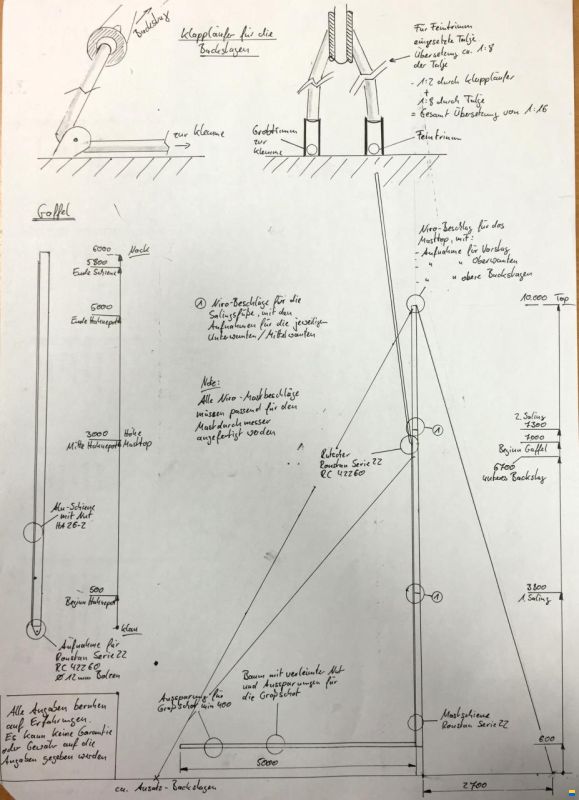 Backstag
Klappläufer für die
Backstagen
zur Klemme
Grobtrimm
zur
Klemme
Feintrimm
Für Feintrimm
eingesetzte Talje
Übersetzung ca. 1:8
der Talje
- 1:2 durch Klappläufer
+
1:8 durch Talje
= Gesamt Übersetzung von 1:16
Gaffel
6000 Nock
5800
Ende Schiene
5000
Ende Hahnepoth
3000 Höhe
Mitte Hahnepoth Masttop
Alu-Schiene
mit Nut
HA26-2
500
Beginn Hahnepot
Klau
Aufnahme für
Ronstan Serie 22
RC 42260
Ø 12mm Bolzen
Alle Angaben beruhen
auf Erfahrungen.
Es kann keine Garantie
oder Gewähr auf die
Angaben gegeben werden
1 Niro-Beschläge für die
Salingsfüße, mit den
Aufnahmen für die jeweiligen
Unterwanten/Mittelwanten
Note:
Alle Niro-Mastbeschläge
müssen passend für den
Mastdurchmesser
angefertigt werden
Niro-Beschlag für das
Masttop, mit:
- Aufnahme für Vorstag
" " Oberwanten
" " obere Backstagen
10.000 Top
2. Saling
7300
7000
Beginn Gaffel
6700
unteres Backstag
1
Rutscher
Ronstan Serie 22
RC 42260
3800
1. Saling
1
Baum mit verleimter Nut
und Aussparungen für
die Großschot
Aussparung für
Großschot min 400
Mastschiene
Ronstan Serie 22
600
5000
2700
ca. Ansatz-Backstagen